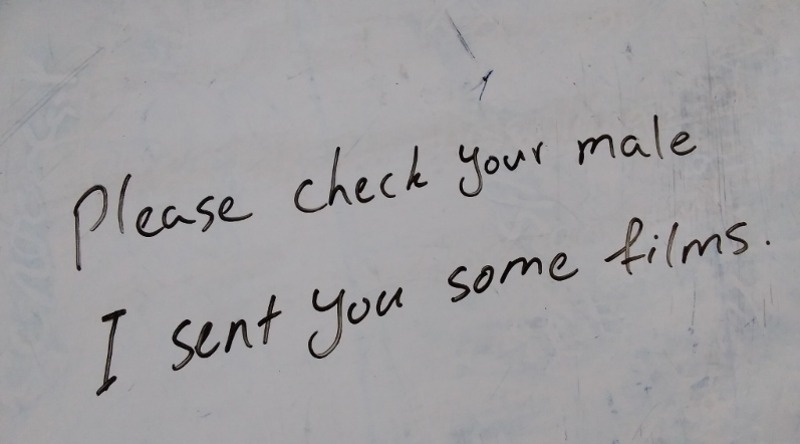 Please check your male
I sent you some films.